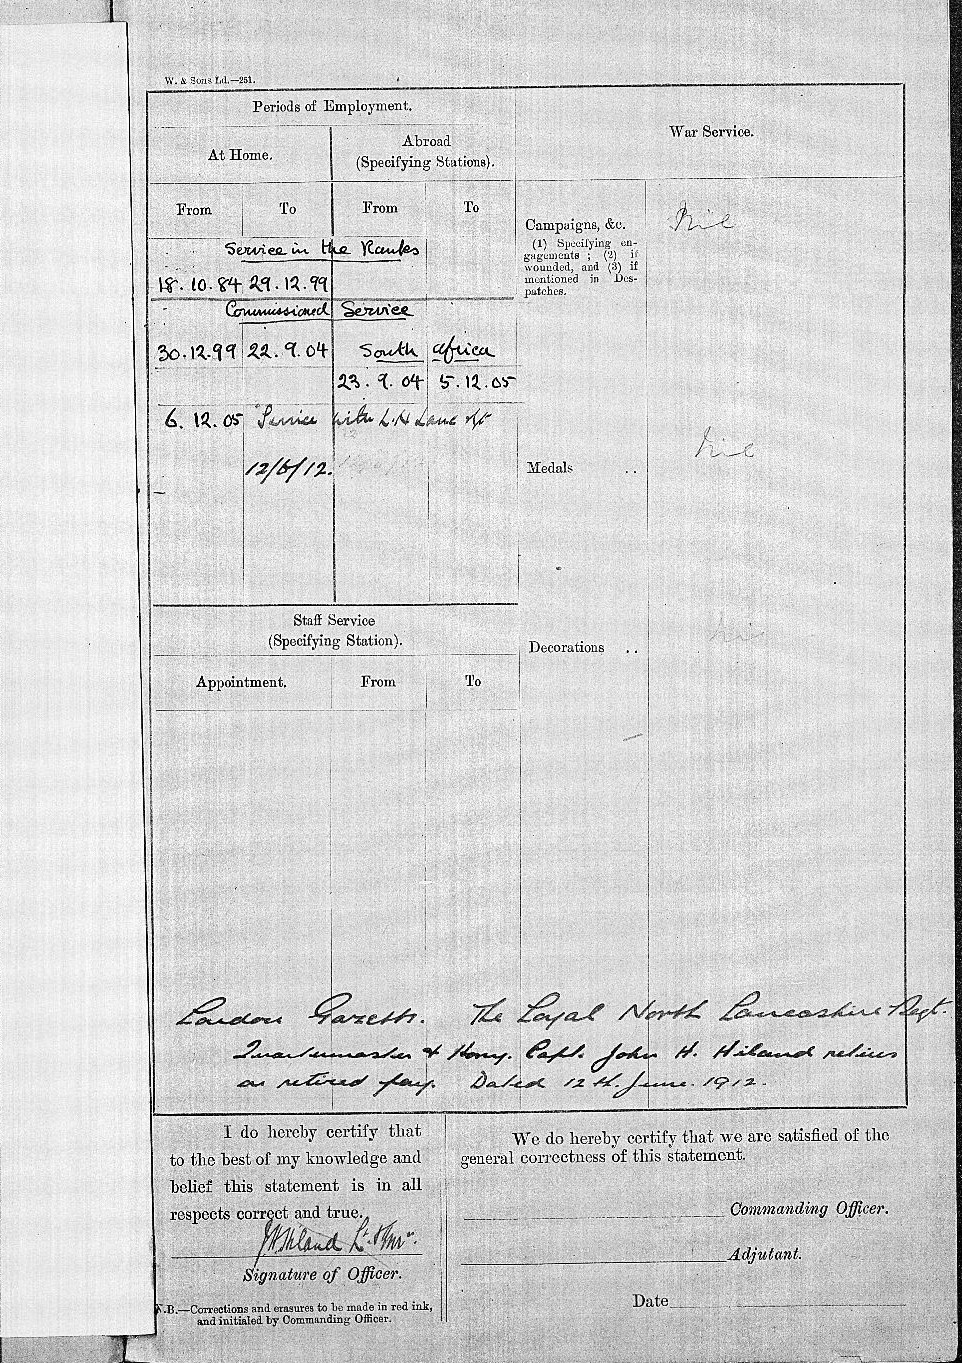 W. & Sons Ld.—251.
Periods of Employment.
War Service.
At Home.
Abroad
(Specifying Stations).
From To From To
Service in the Ranks
18.10.84 29.12.99
Commissioned Service
30.12.99 22.9.04 South Africa
23.9.04 5.12.05
6.12.05 Service with L. N Lanc
12/6/12.
Campaigns, &c.
(1) Specifying en-
gagements ; (2) if
wounded, and (3) if
mentioned in Des-
patches.
Nil
Medals . .
Nil
Decorations . .
Staff Service
(Specifying Station).
Appointment. From To
London Gazette. The Loyal North Lancashire Regt.
Quartermaster & Hony. Capt. John H. Hiland retires
on retired pay. Dated 12th. June. 1912.
I do hereby certify that
to the best of my knowledge and
belief this statement is in all
respects correct and true.
JHHiland Lt. & Qmr.
Signature of Officer.
N.B.—Corrections and erasures to be made in red ink,
and initialed by Commanding Officer.
We do hereby certify that we are satisfied of the
general correctness of this statement.
Commanding Officer.
Adjutant.
Date